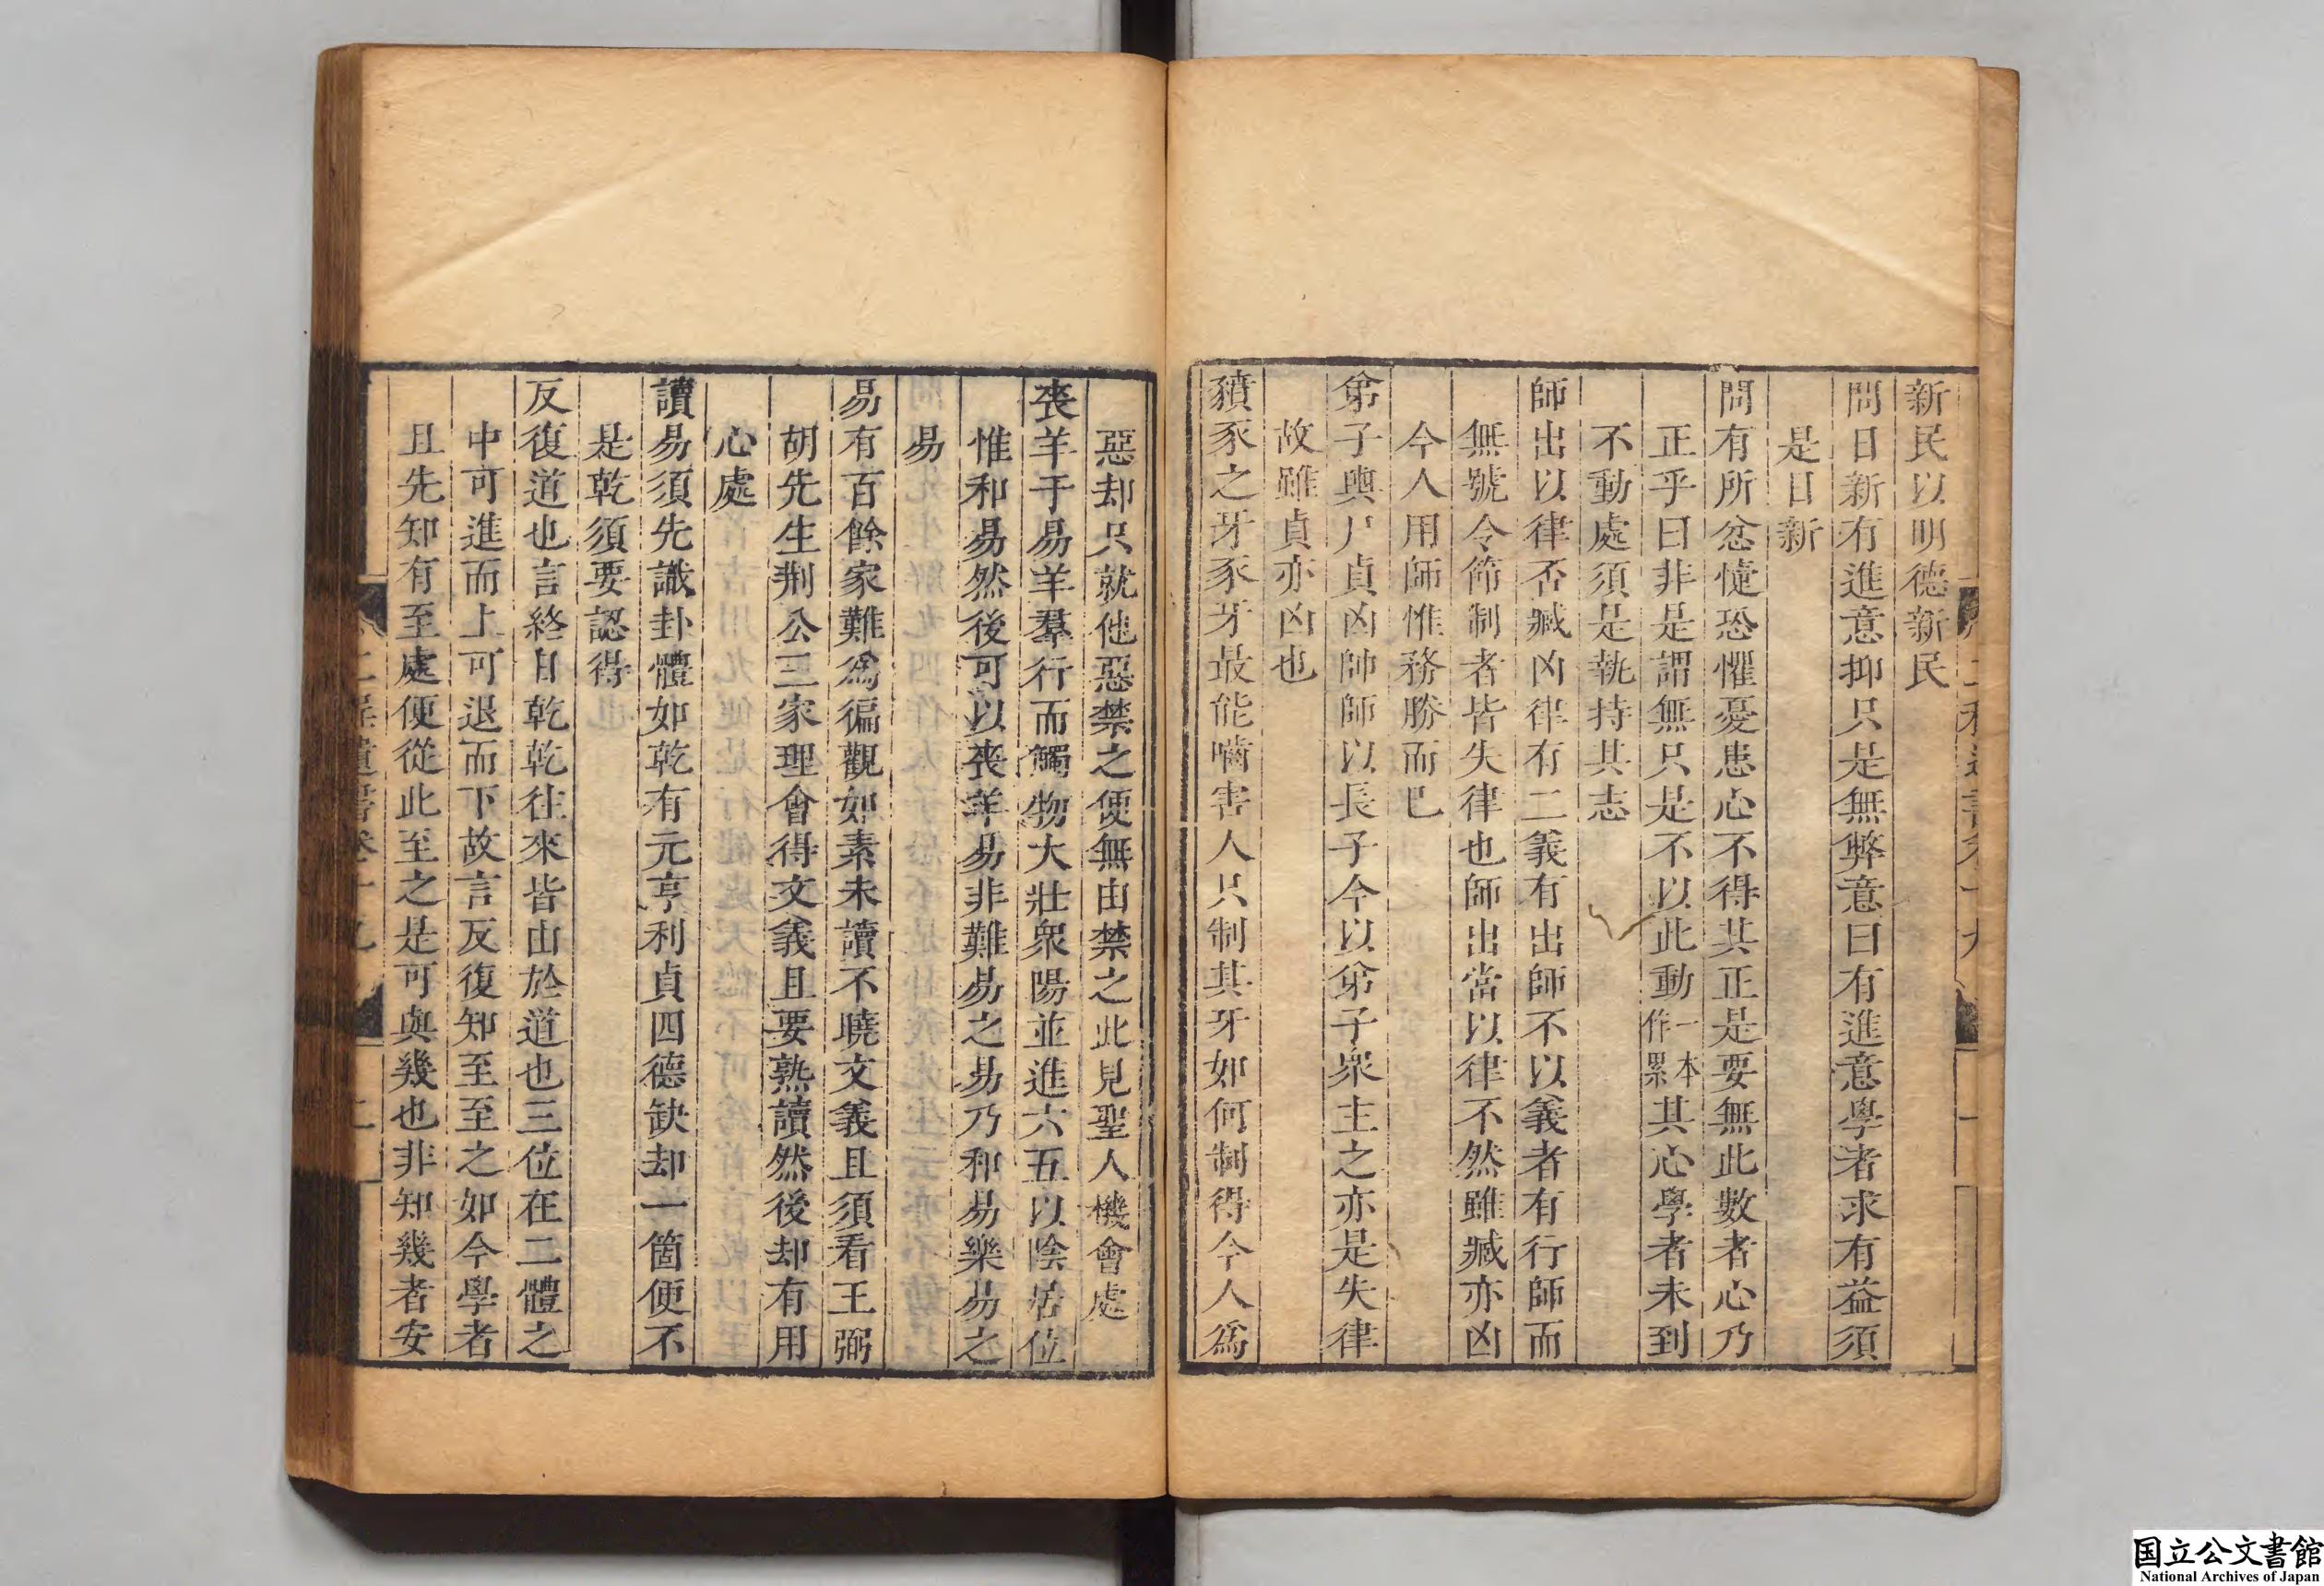 新民以明德新民
問日新有進意抑只是無弊意曰有進意學者求有益須
是日新
問有所忿懥恐懼憂患心不得其正是要無此數者心乃
正乎曰非是謂無只是不以此動一本作累其心學者未到
不動處須是執持其志
師出以律否臧凶律有二義有出師不以義者有行師而
無號令節制者皆失律也師出當以律不然雖臧亦凶
今人用師惟務勝而已
弟子輿尸貞凶帥師以長子今以弟子衆主之亦是失律
故雖貞亦凶也
豶豕之牙豕牙最能嚙害人只制其牙如何制得今人爲
惡却只就他惡禁之便無由禁之此見聖人機會處
喪羊于易羊羣行而觸物大壯衆陽並進六五以陰居位
惟和易然後可以喪羊易非難易之易乃和易樂易之
易
易有百餘家難爲徧觀如素未讀不曉文義且須看王弼
胡先生荆公三家理會得文義且要熟讀然後却有用
心處
讀易須先識卦體如乾有元亨利貞四德缺却一箇便不
是乾須要認得
反復道也言終日乾乾往來皆由於道也三位在二體之
中可進而上可退而下故言反復知至至之如今學者
且先知有至處便從此至之是可與幾也非知幾者安
二程遺書卷十九
二
国立公文書館
National Archives of Japan